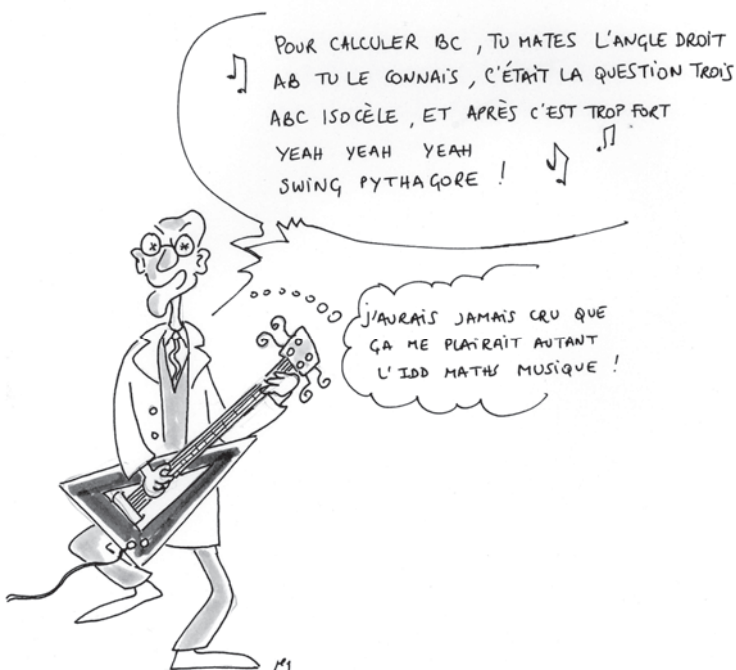 POUR CALCULER BC, TU MATES L'ANGLE DROIT
AB TU LE CONNAIS, C'ÉTAIT LA QUESTION TROIS
ABC ISOCÈLE, ET APRÈS C'EST TROP FORT
YEAH YEAH YEAH
SWING PYTHAGORE !
J'AURAIS JAMAIS CRU QUE
ÇA ME PLAIRAIT AUTANT
L'IDD MATHS MUSIQUE !